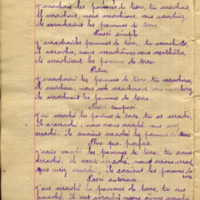 j'arrachais les pommes de terre, tu arrachais
il arrachait, nous arrachions vous arrachiez
ils arrachaient les pommes de terre.
Passé simple
j'arrachai les pommes de terre, tu arrachas
il arracha, nous arrachâmes vous arrachâtes,
ils arrachèrent les pommes de terre.
Futur
j'arracherai les pommes de terre, tu arracheras,
il arrachera, nous arracherons vous arracherez
ils arracheront les pommes de terre.
Passé composé
J'ai arraché les pommes de terre, tu as arraché,
il a arraché, nous avons arraché vous avez
arraché, ils avaient arraché les pommes de terre
Plus que parfait
J'avais arraché les pommes de terre, tu avais
arraché, il avait arraché, nous avions arraché
vous aviez arraché, ils avaient les pommes de terre
Passé antérieur
J'eus arraché les pommes de terre, tu eus
arraché, il eut arraché nous eûmes arraché